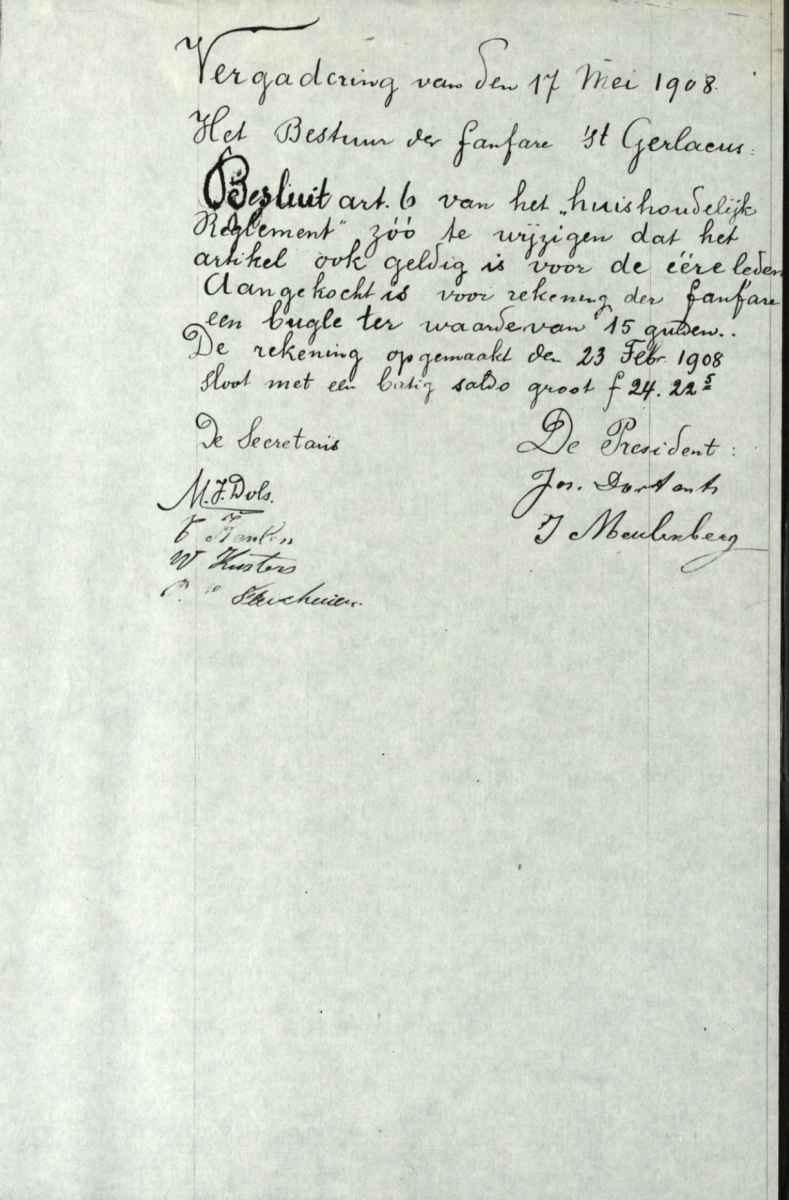 Vergadering van den 17 Mei 1908.
Het Bestuur der fanfare 'St Gerlacus:
Besluit art. 6 van het „huishoudelijk
Reglement" zóó te wijzigen dat het
artikel ook geldig is voor de eére leden
Aangekocht is voor rekening der fanfare
een bugle ter waarde van 15 gulden..
De rekening opgemaakt den 23 Febr 1908
sloot met een batig saldo groot f 24.22⁵
De Secretaris De President:
M.J. Dols. Jos.
J Meulenberg
W Kusters